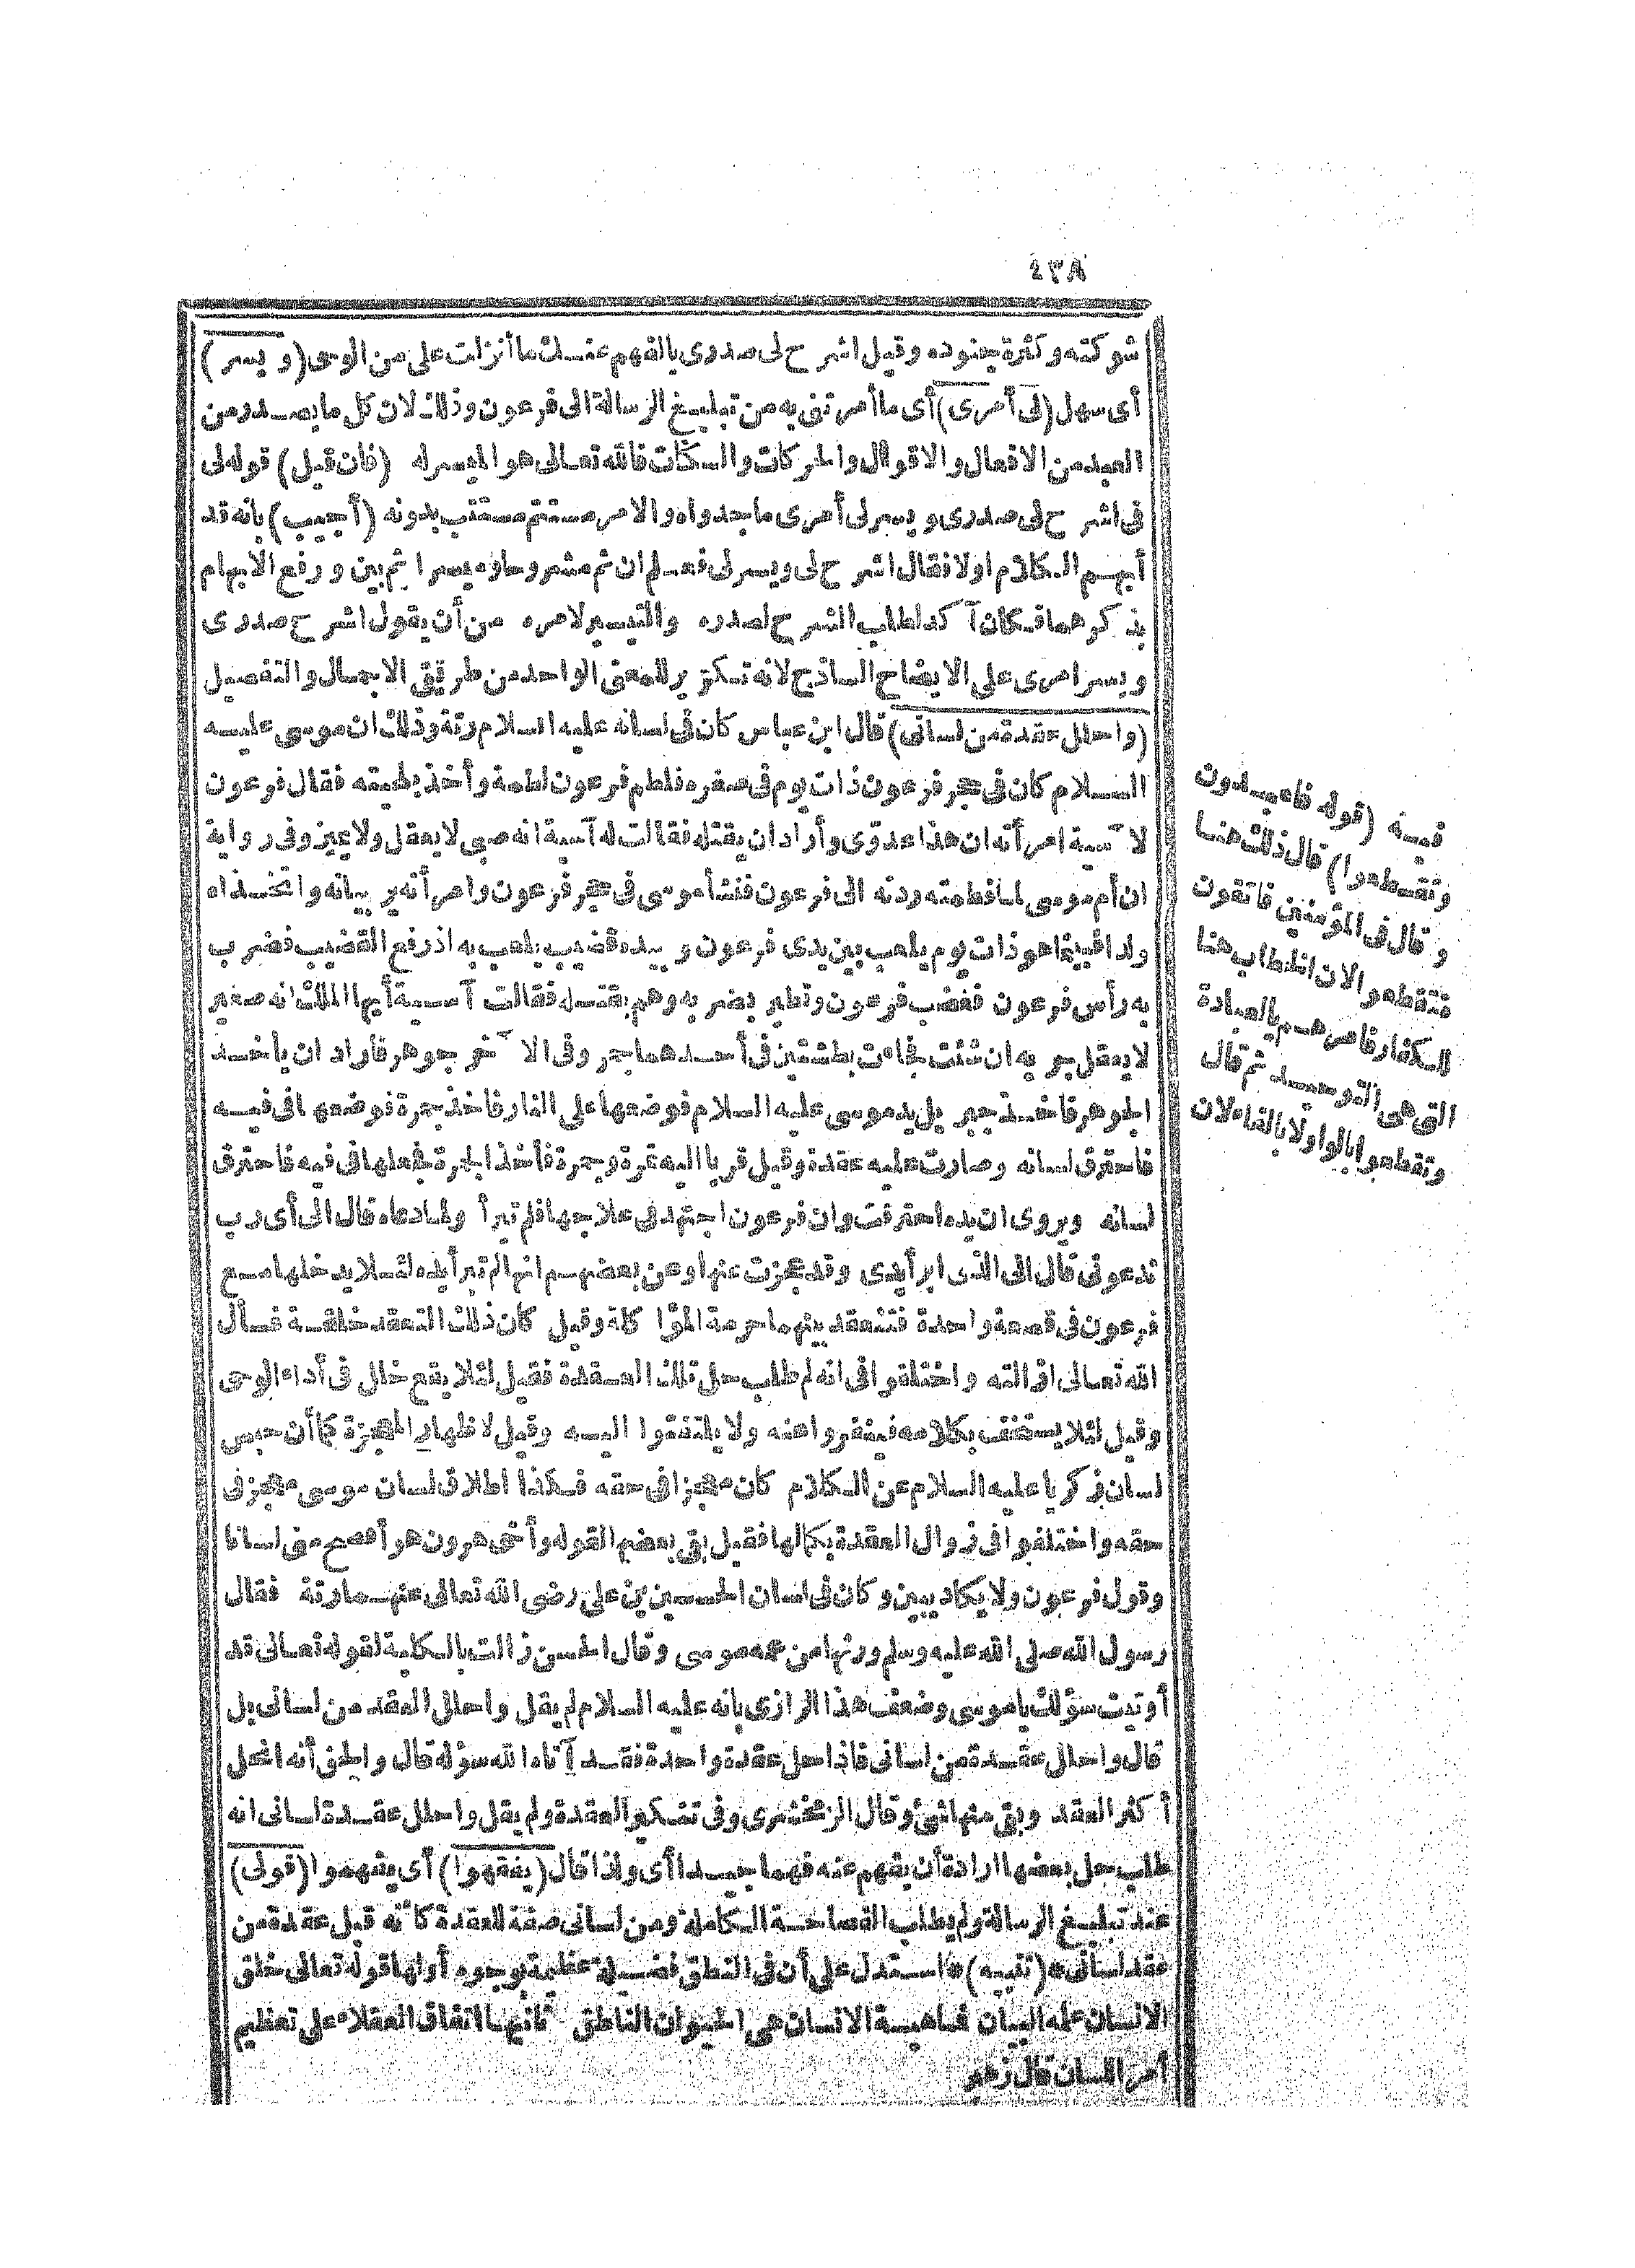 ٤٣٨
شوكته وكثرة جنوده وقيل اشرح لى صدرى بالفهم عنك ما أنزلت على من الوحى (ويسر)
أى سهل (لى أمرى) أى ما أمرتنى به من تبليغ الرسالة الى فرعون وذلك لان كل ما يصدر من
العبد من الافعال والاقوال والحركات والسكنات فالله تعالى هو الميسر له (فان قيل) قوله لى
فى اشرح لى صدرى ويسر لى أمرى ما جدواه والامر مستتم مستتب بدونه (أجيب) بانه قد
أبهم الكلام اولا فقال اشرح لى ويسر لى فعلم ان ثم مشروحا وميسرا ثم بين ورفع الابهام
بذكرهما فكان آكد لطلب الشرح لصدره والتيسير لامره من أن يقول اشرح صدرى
ويسر امرى على الايضاح الساذج لانه تكرير للمعنى الواحد من طريق الاجمال والتفصيل
(واحلل عقدة من لسانى) قال ابن عباس كان فى لسانه عليه السلام رتة وذلك ان موسى عليه
السلام كان فى حجر فرعون ذات يوم فى صغره فلطم فرعون لطمة وأخذ بلحيته فقال فرعون
لآسية امرأته ان هذا عدوى وأراد ان يقتله فقالت له آسية انه صبى لا يعقل ولا يميز وفى رواية
ان أم موسى لما فطمته ردته الى فرعون فنشأ موسى فى حجر فرعون وامرأته يربيانه واتخذاه
ولدا فبينما هو ذات يوم يلعب بين يدى فرعون وبيده قضيب يلعب به اذ رفع القضيب فضرب
به رأس فرعون فغضب فرعون وتطير بضربه وهم بقتله فقالت آسية أيها الملك انه صغير
لا يعقل جربه ان شئت فجاءت بطشتين فى أحدهما جمر وفى الآخر جوهر فاراد ان يأخذ
الجوهر فاخذ جبريل يد موسى عليه السلام فوضعها على النار فاخذ جمرة فوضعها فى فيه
فاحترق لسانه وصارت عليه عقدة وقيل قربا اليه تمرة وجمرة فأخذ الجمرة فجعلها فى فيه فاحترق
لسانه ويروى ان يده احترقت وان فرعون اجتهد فى علاجها فلم تبرأ ولما دعاه قال الى أى رب
تدعونى قال الى الذى ابرأ يدى وقد عجزت عنها وعن بعضهم انها لم تبرأ يده لئلا يدخلها مع
فرعون فى قصعة واحدة فتنعقد بينهما حرمة المؤاكلة وقيل كان ذلك التعقد خلقة فسأل
الله تعالى ازالته واختلفوا فى انه لم طلب حل تلك العقدة فقيل لئلا يقع خلل فى أداء الوحى
وقيل لئلا يستخف بكلامه فينفروا عنه ولا يلتفتوا اليه وقيل لاظهار المعجزة كما أن حبس
لسان زكريا عليه السلام عن الكلام كان معجزا فى حقه فكذا اطلاق لسان موسى معجز فى
حقه واختلفوا فى زوال العقدة بكمالها فقيل بقى بعضها لقوله وأخى هرون هو أفصح منى لسانا
وقول فرعون ولا يكاد يبين وكان فى لسان الحسين بن على رضى الله تعالى عنهما رتة فقال
رسول الله صلى الله عليه وسلم ورثها من عمه موسى وقال الحسن زالت بالكلية لقوله تعالى قد
أوتيت سؤلك يا موسى وضعف هذا الرازى بانه عليه السلام لم يقل واحلل العقد من لسانى بل
قال واحلل عقدة من لسانى فاذا حل عقدة واحدة فقد آتاه الله سؤله قال والحق أنه انحل
أكثر العقد وبقى منها شئ وقال الزمخشرى وفى تنكير العقدة ولم يقل واحلل عقدة لسانى انه
طلب حل بعضها ارادة أن يفهم عنه فهما جيدا أى ولذا قال (يفقهوا) أى يفهموا (قولى)
عند تبليغ الرسالة ولم يطلب الفصاحة الكاملة ومن لسانى صفة للعقدة كأنه قيل عقدة من
عقد لسانى * (تنبيه) * استدل على أن فى النطق فضيلة عظيمة بوجوه أولها قوله تعالى خلق
الانسان علمه البيان فماهية الانسان هى الحيوان الناطق ثانيها اتفاق العقلاء على تعظيم
أمر اللسان قال زهير
فيه (قوله فاعبدون
وتقطعوا) قال ذلك هنا
وقال فى المؤمنين فاتقون
فتقطعوا لان الخطاب هنا
للكفار فامرهم بالعبادة
التى هى التوحيد ثم قال
وتقطعوا بالواو لا بالفاء لان